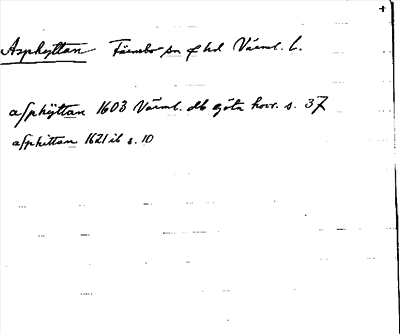 +
Asphyttan Färnebo sn o hd Värml. L.
asphÿttan 1603 Värml. db göta hovr. s. 37
asphittan 1621 ib s. 10